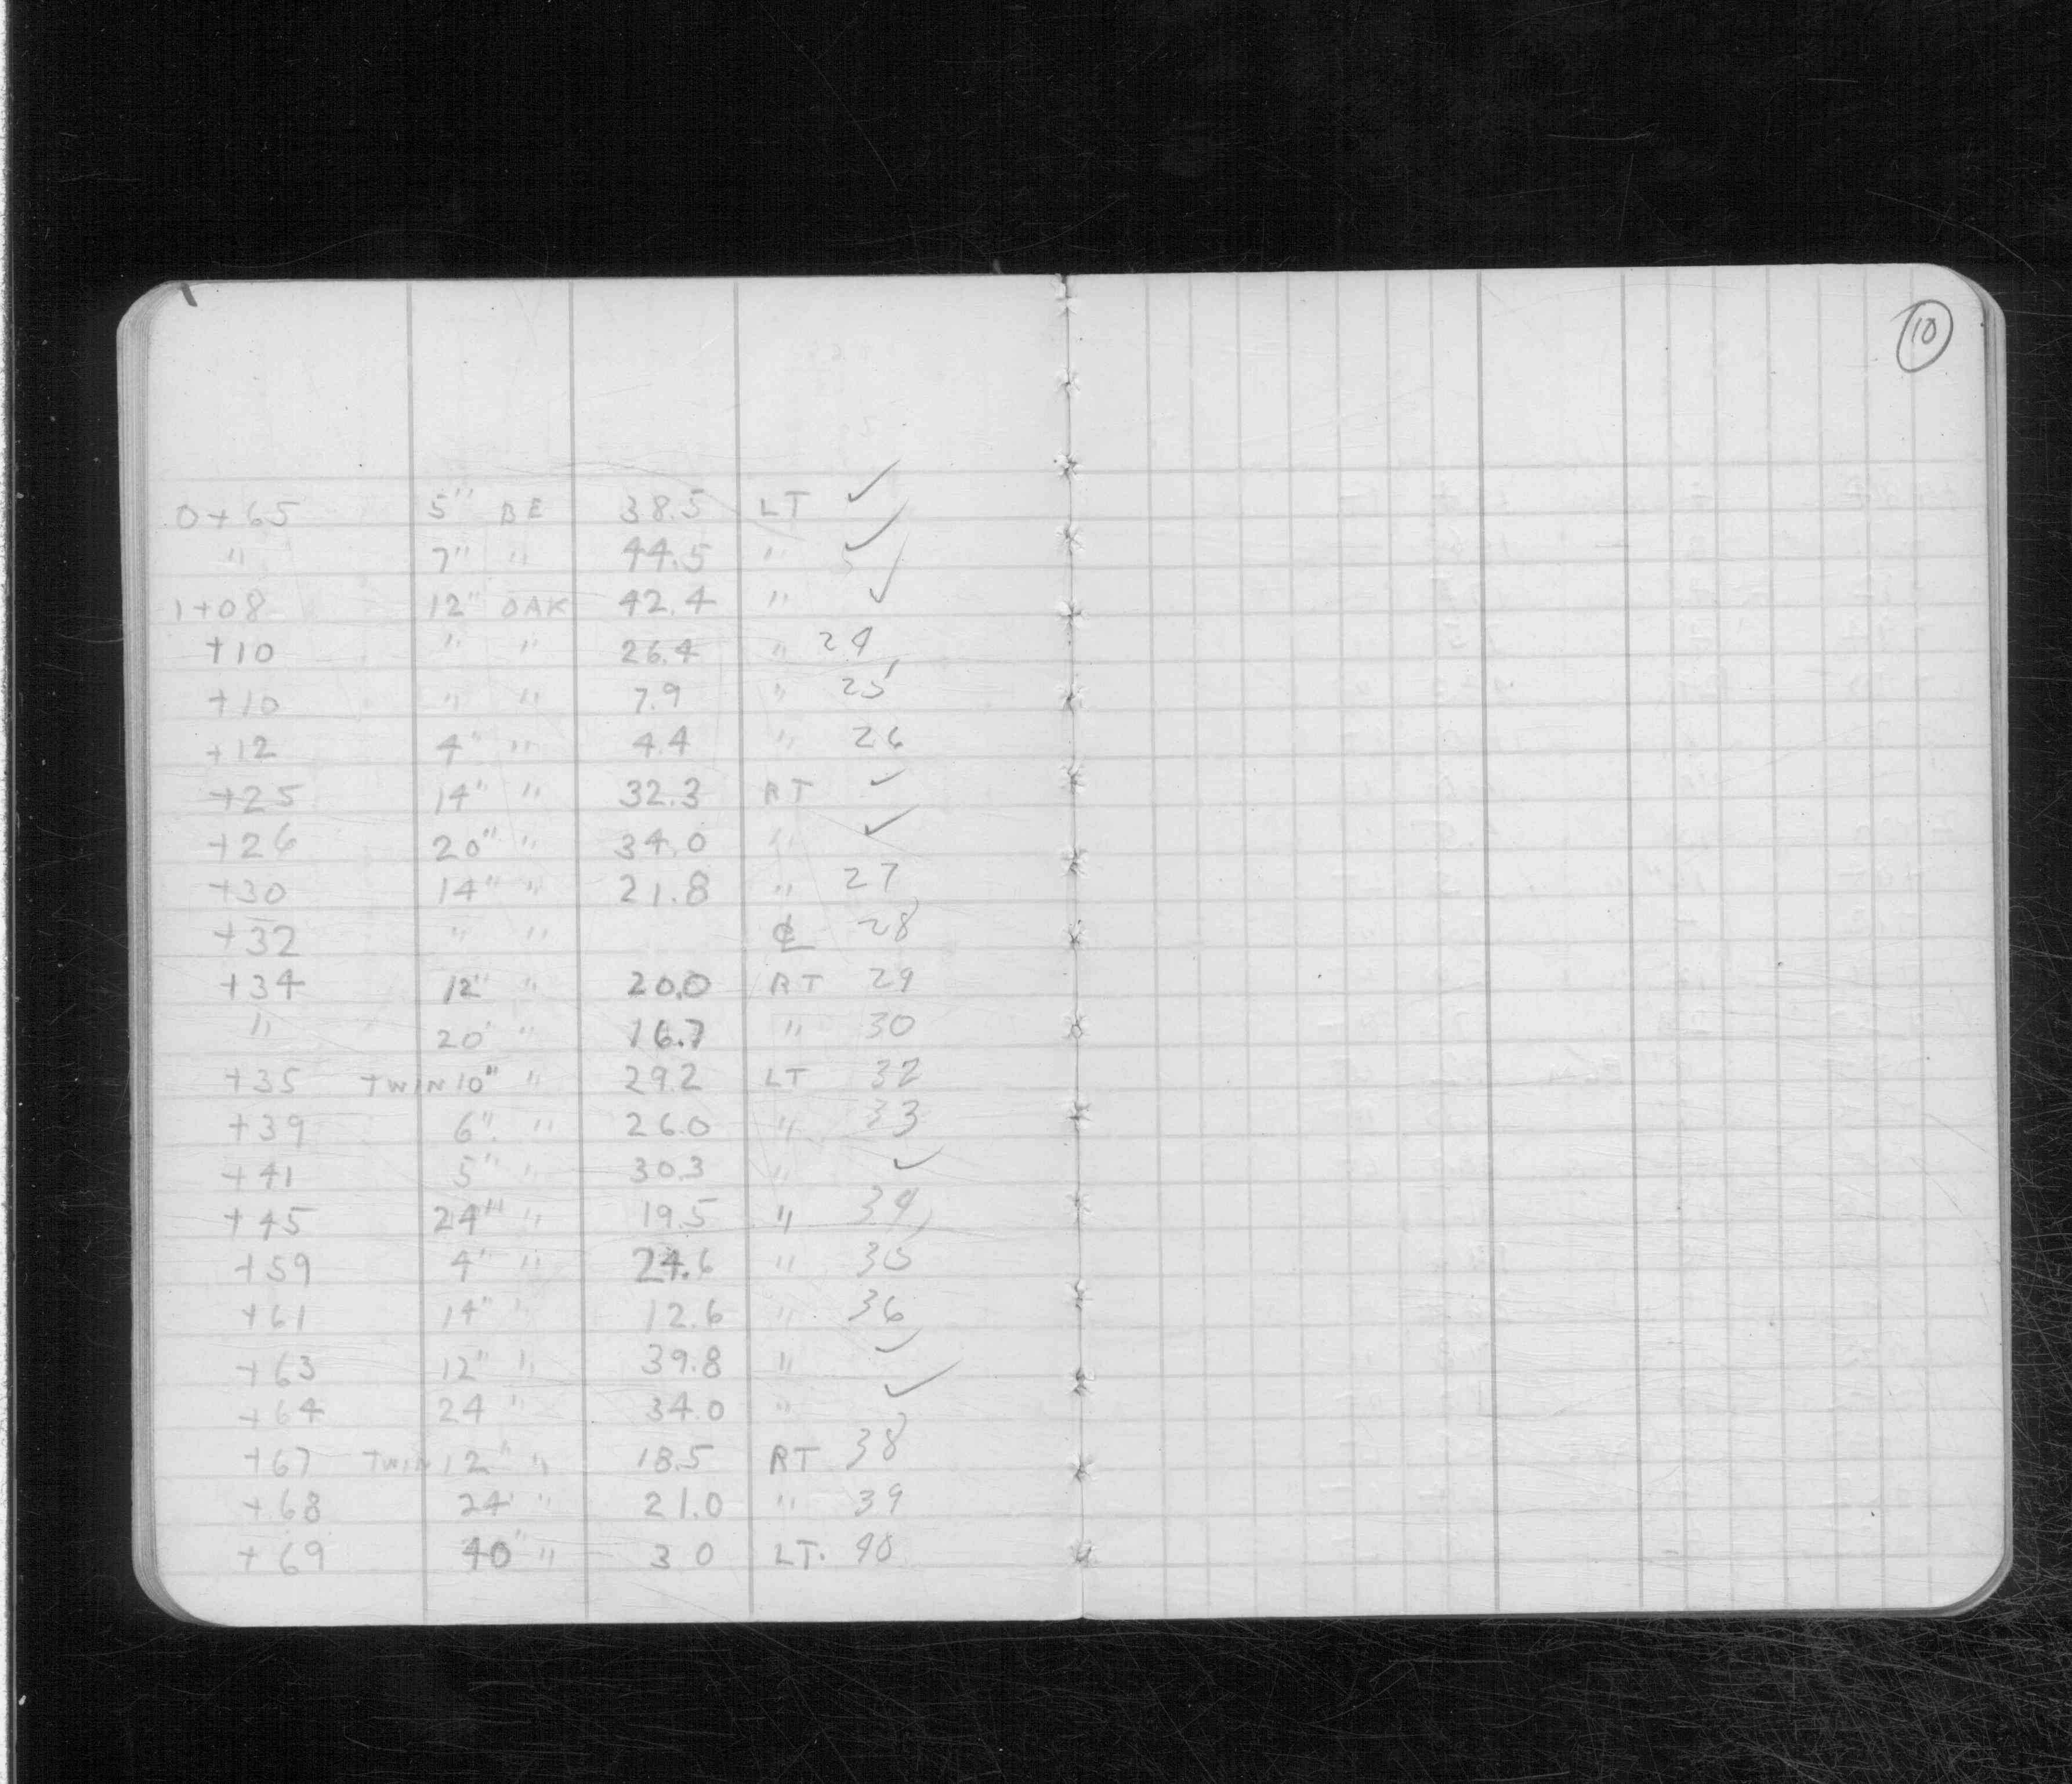 10
0+65 5" BE 38.5 LT ✓
" 7" " 44.5 " ✓
1+08 12" OAK 42.4 " ✓
+10 " " 26.4 " 24
+10 " " 7.9 " 25
+12 4" " 4.4 " 26
+25 14" " 32.3 RT ✓
+26 20" " 34.0 " ✓
+30 14" " 21.8 " 27
+32 " " ℄ 28
+34 12" " 20.0 RT 29
" 20" " 16.7 " 30
+35 TWIN 10" " 29.2 LT 32
+39 6" " 26.0 " 33
+41 5" " 30.3 " ✓
+45 24" " 19.5 " 34
+59 4" " 24.6 " 35
+61 14" " 12.6 " 36
+63 12" " 39.8 " ✓
+64 24 " 34.0 " ✓
+67 TWIN 12" " 18.5 RT 38
+68 24" " 21.0 " 39
+69 40" " 3.0 LT. 40